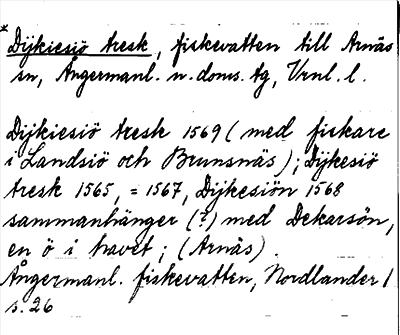 * Dijkiesiö tresk, fiskevatten till Arnäs
sn, Ångermanl. n. doms. tg, Vrnl. l.
Dijkiesiö tresk 1569 (med fiskare
i Landsiö och Brunsnäs); Dijkesiö
tresk 1565, = 1567, Dijkesiön 1568
sammanhänger (?) med Dekarsön,
en ö i havet; (Arnäs).
Ångermanl. fiskevatten, Nordlander /
s. 26